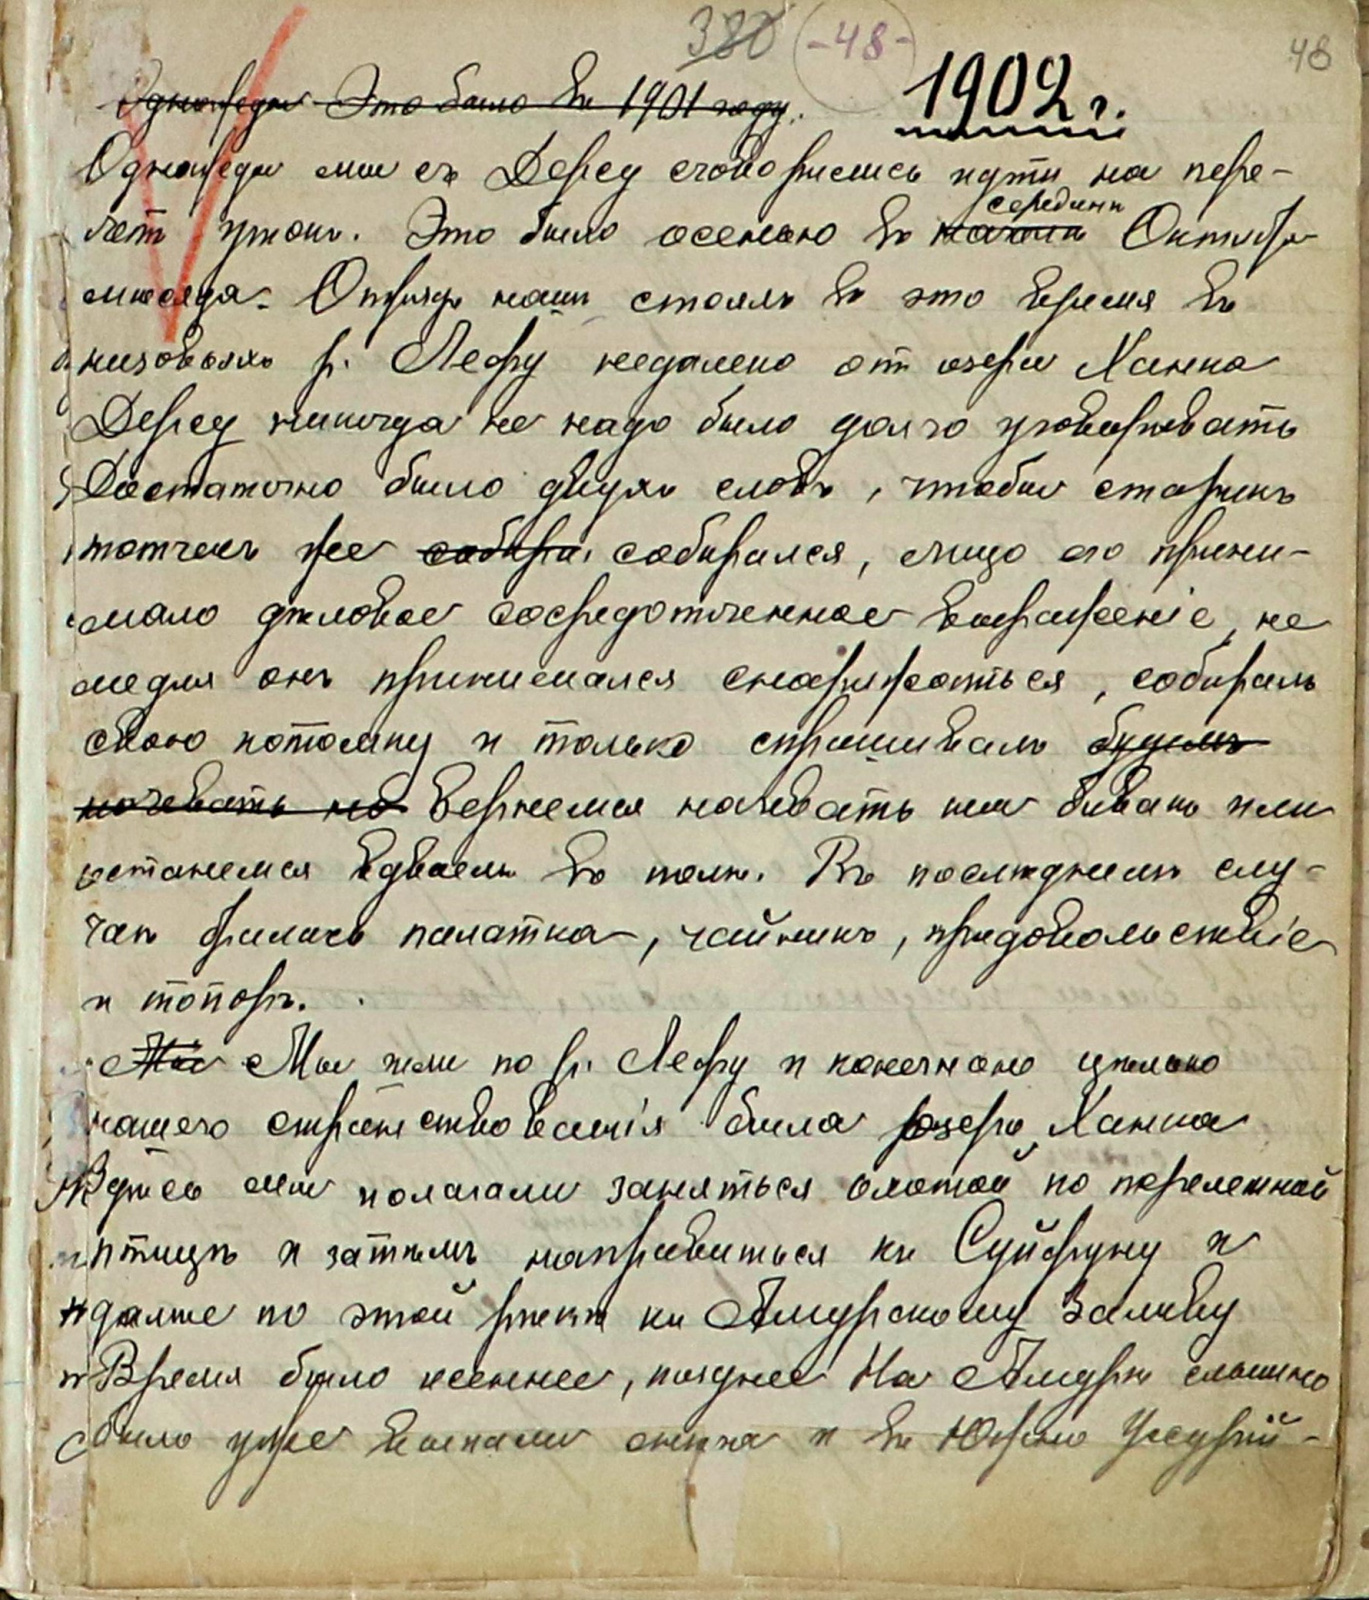 380 -48- 48
Однажды Это было въ 1901 году. 1902 г.
Однажды мы съ Дерсу сговорились идти на пере-
лет уток. Это было осенью въ начале середине Октября
месяца. Отрядъ нашъ стоялъ въ это время въ
низовьяхъ р. Лефу недалеко от озера Ханка
Дерсу никогда не надо было долго уговаривать
Достаточно было двухъ словъ, чтобы старикъ
тотчасъ же собира собирался, лицо его прини-
мало дѣловое сосредоточенное выраженіе, не
медля онъ принимался снаряжаться, собиралъ
свою котомку и только спрашивалъ будемъ
ночевать на вернемся начевать на бивакъ или
останемся вдвоемъ въ полѣ. Въ последнемъ слу-
чаѣ бралась палатка, чайникъ, продовольствіе
и топоръ.
Мы Мы шли по р. Лефу и конечною цѣлью
нашего странствованія была озеро Ханка
Здѣсь мы полагали заняться охотой по перелетной
птицѣ и затѣмъ направиться къ Суйфуну и
далѣе по этой рѣкѣ къ Амурскому заливу
Время было осеннее, позднее На Амурѣ слышно
было уже выпали снѣга и въ Южно Уссурій-